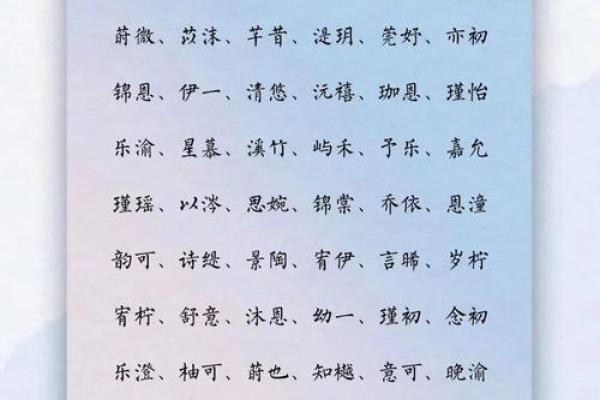 莳微、苡沫、芊昔、湜玥、莞妤、亦初
锦恩、伊一、清悠、沅禧、珈恩、瑾怡
乐渝、星慕、溪竹、屿禾、予乐、嘉允
瑾瑶、以涔、思婉、锦棠、乔依、恩潼
韵可、诗缇、景陶、宥伊、言晞、岁柠
宥柠、舒意、沐恩、幼一、瑾初、念初
乐澄、柚可、莳也、知樾、意可、晚渝